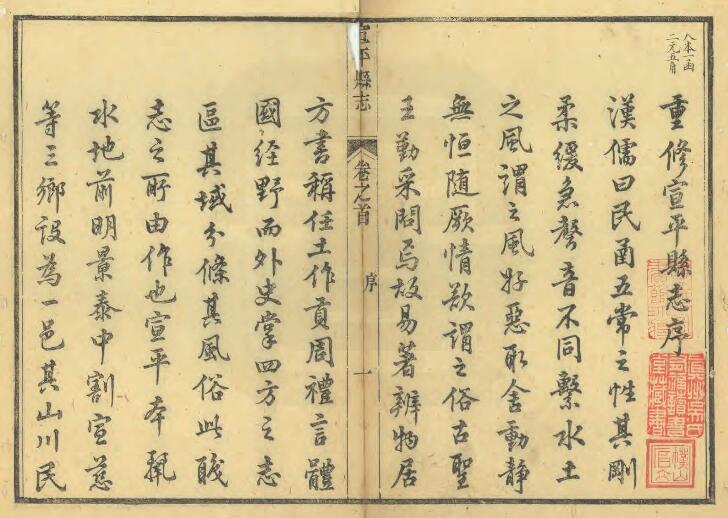 八本一函
二元五角
重修宣平縣志序
漢儒曰民函五常之性其剛
柔緩急聲音不同繫水土
之風謂之風好惡取舍動静
無恒随厥情欲謂之俗古聖
王勤采問焉故易著辨物居
宣平縣志
卷之首
序
一
方書稱任土作貢周禮言體
國經野而外史掌四方之志
區其域分條其風俗此職
志之所由作也宣平本麗
水地前明景泰中割宣慈
等三鄉設為一邑其山川民